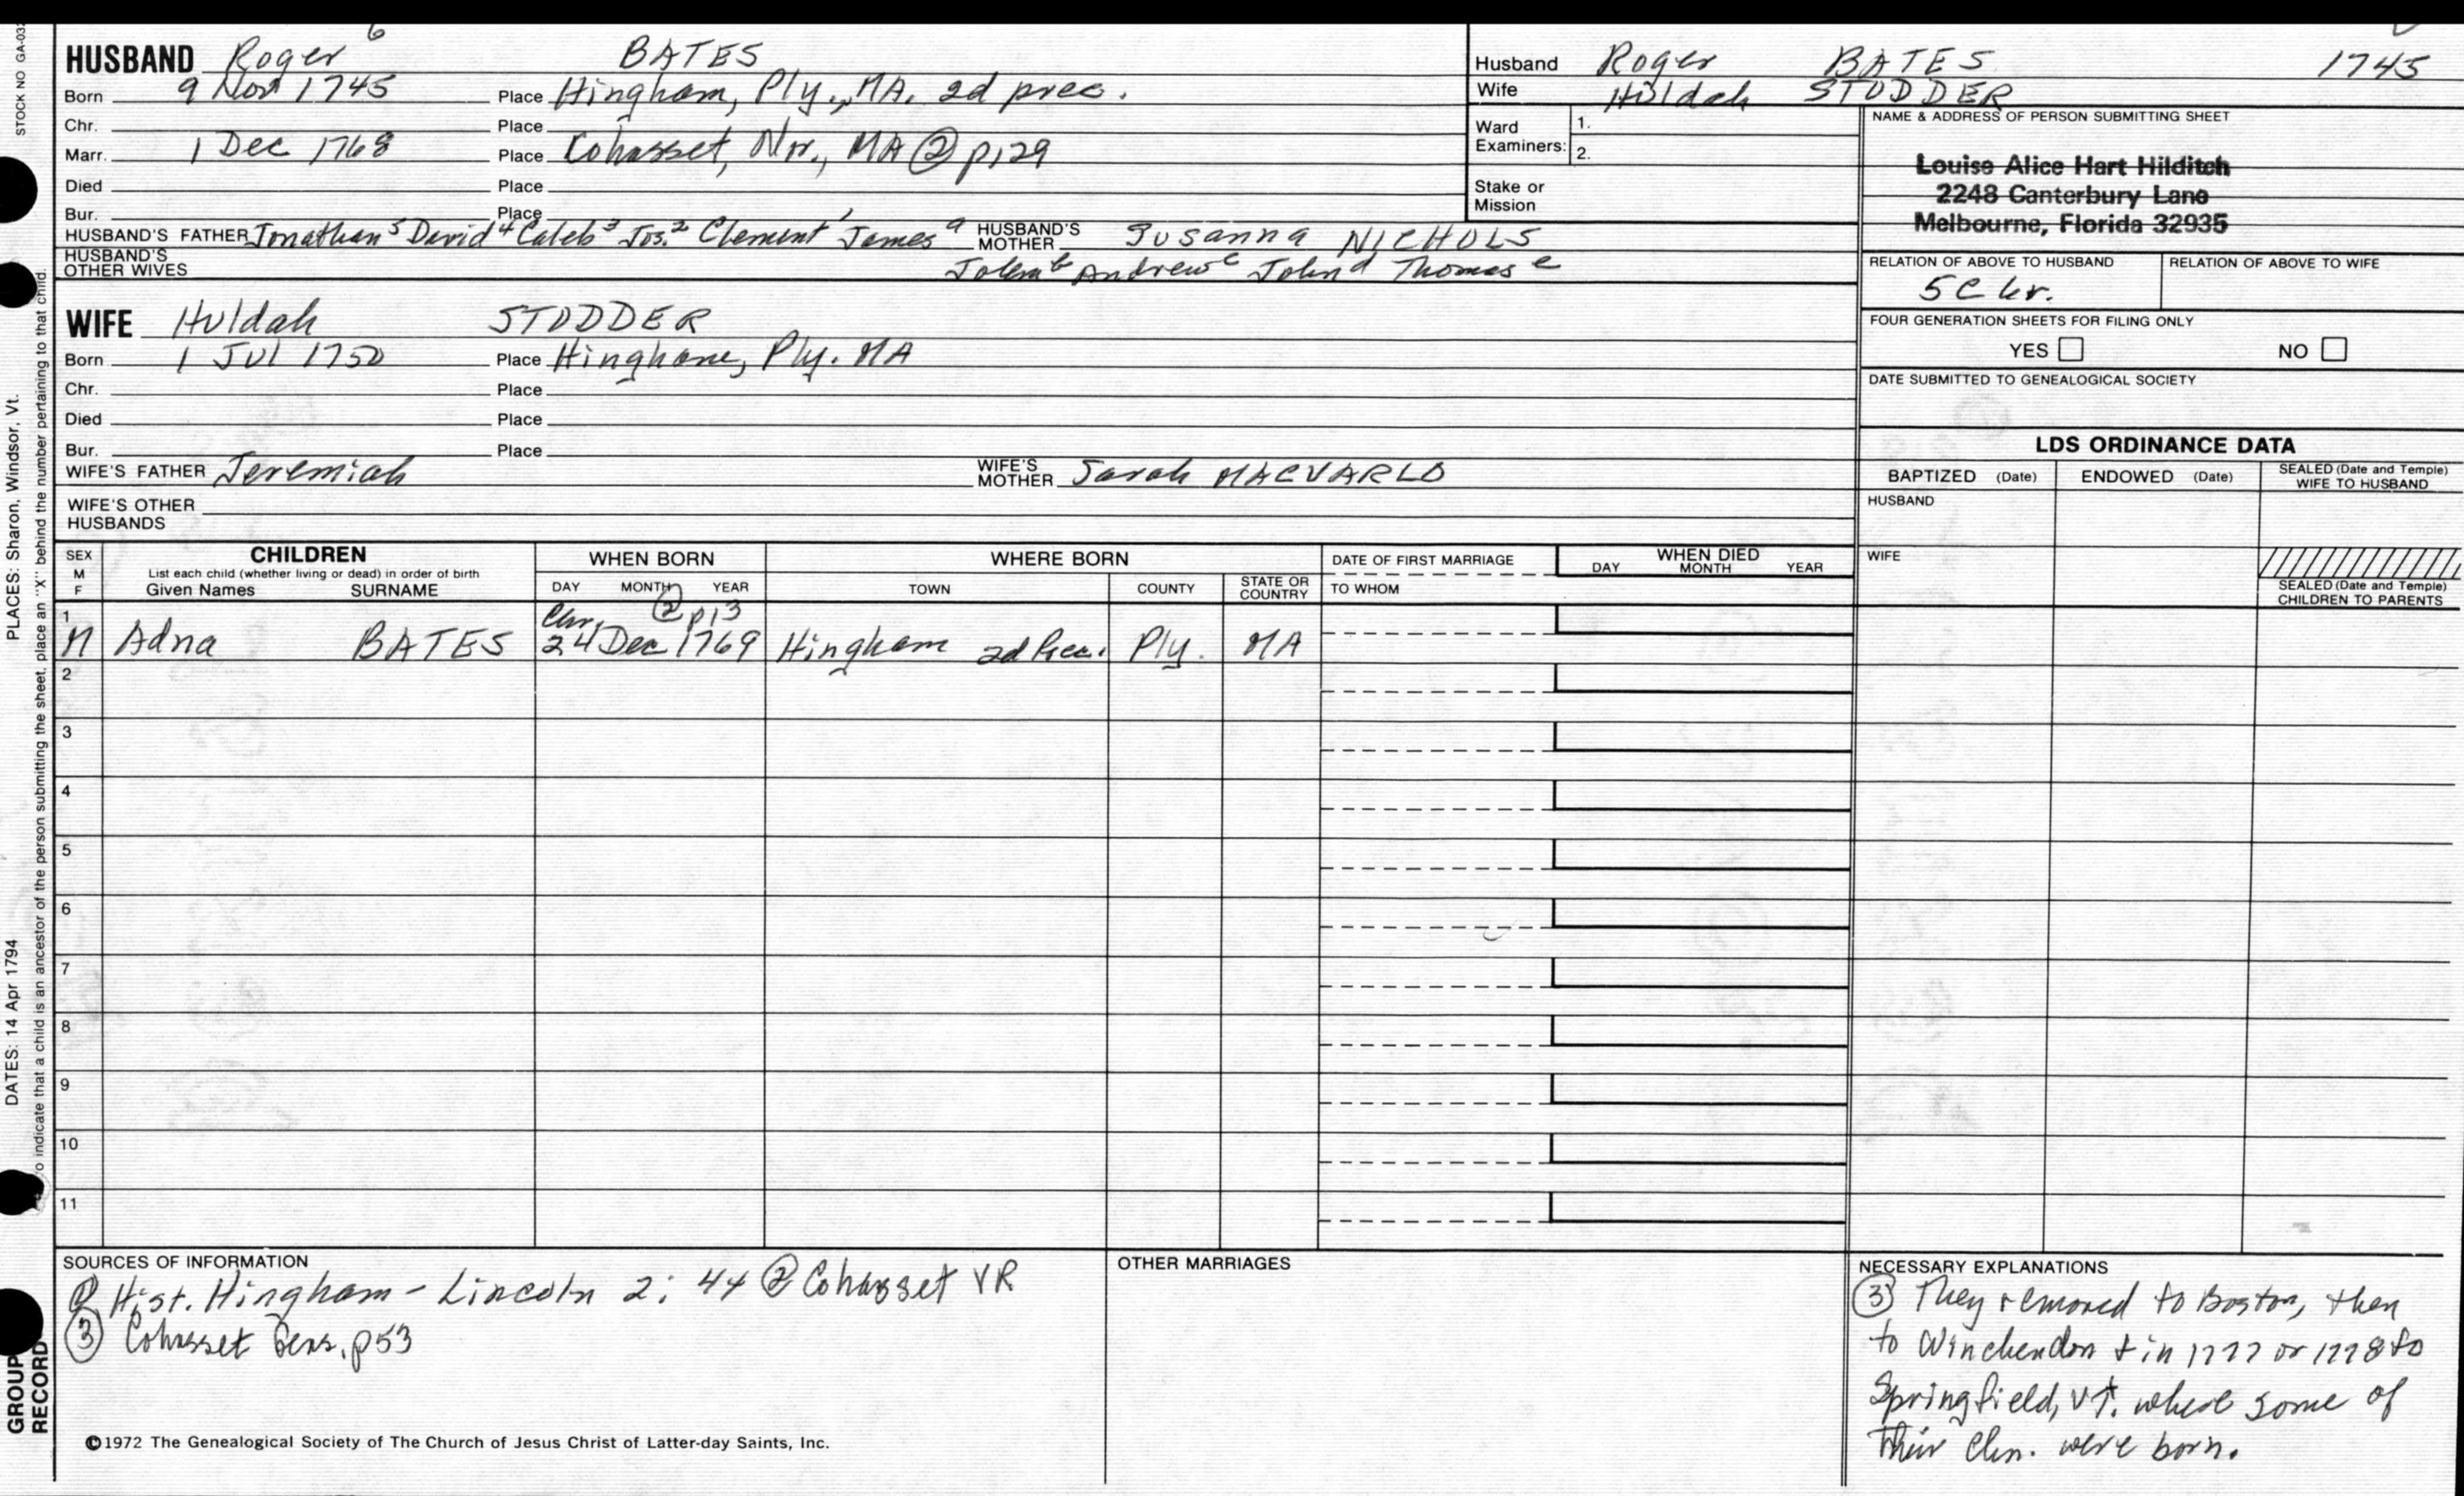 HUSBAND Roger 6 BATES
Born 9 Nov 1745 Place Hingham, Ply., MA. 2d prec.
Chr. Place
Marr. 1 Dec 1768 Place Cohasset, Nor., MA ② p129
Died Place
Bur. Place
HUSBAND'S FATHER Jonathan 5 David 4 Caleb 3 Jos. 2 Clement 1 James a HUSBAND'S MOTHER Susanna NICHOLS
HUSBAND'S OTHER WIVES Andrew c John d Thomas e
WIFE Huldah STODDER
Born 1 Jul 1750 Place Hingham, Ply. MA
Chr. Place
Died Place
Bur. Place
WIFE'S FATHER Jeremiah WIFE'S MOTHER Sarah MACVARLO
WIFE'S OTHER HUSBANDS
Husband Roger BATES 1745
Wife Huldah STODDER
Ward Examiners: 1.
2.
Stake or Mission
NAME & ADDRESS OF PERSON SUBMITTING SHEET
Louise Alice Hart Hilditch
2248 Canterbury Lane
Melbourne, Florida 32935
RELATION OF ABOVE TO HUSBAND RELATION OF ABOVE TO WIFE
5C
FOUR GENERATION SHEETS FOR FILING ONLY
YES NO
DATE SUBMITTED TO GENEALOGICAL SOCIETY
LDS ORDINANCE DATA
BAPTIZED (Date) ENDOWED (Date) SEALED (Date and Temple) WIFE TO HUSBAND
HUSBAND
WIFE
SEALED (Date and Temple) CHILDREN TO PARENTS
SEX M F CHILDREN WHEN BORN WHERE BORN DATE OF FIRST MARRIAGE WHEN DIED
List each child (whether living or dead) in order of birth
Given Names SURNAME DAY MONTH YEAR TOWN COUNTY STATE OR COUNTRY TO WHOM DAY MONTH YEAR
1 Chr. ② p13
M Adna BATES 24 Dec 1769 Hingham 2d Prec. Ply. MA
2
3
4
5
6
7
8
9
10
11
SOURCES OF INFORMATION
① Hist. Hingham - Lincoln 2: 44 ② Cohasset VR
③ Cohasset Gens. p53
OTHER MARRIAGES
NECESSARY EXPLANATIONS
③ They removed to Boston, then
to Winchendon & in 1777 or 1778 to
Springfield, Vt. where some of
their chn. were born.
©1972 The Genealogical Society of The Church of Jesus Christ of Latter-day Saints, Inc.
STOCK NO GA-03
PLACES: Sharon, Windsor, Vt.
DATES: 14 Apr 1794
to indicate that a child is an ancestor of the person submitting the sheet, place an "X" behind the number pertaining to that child.
GROUP
RECORD